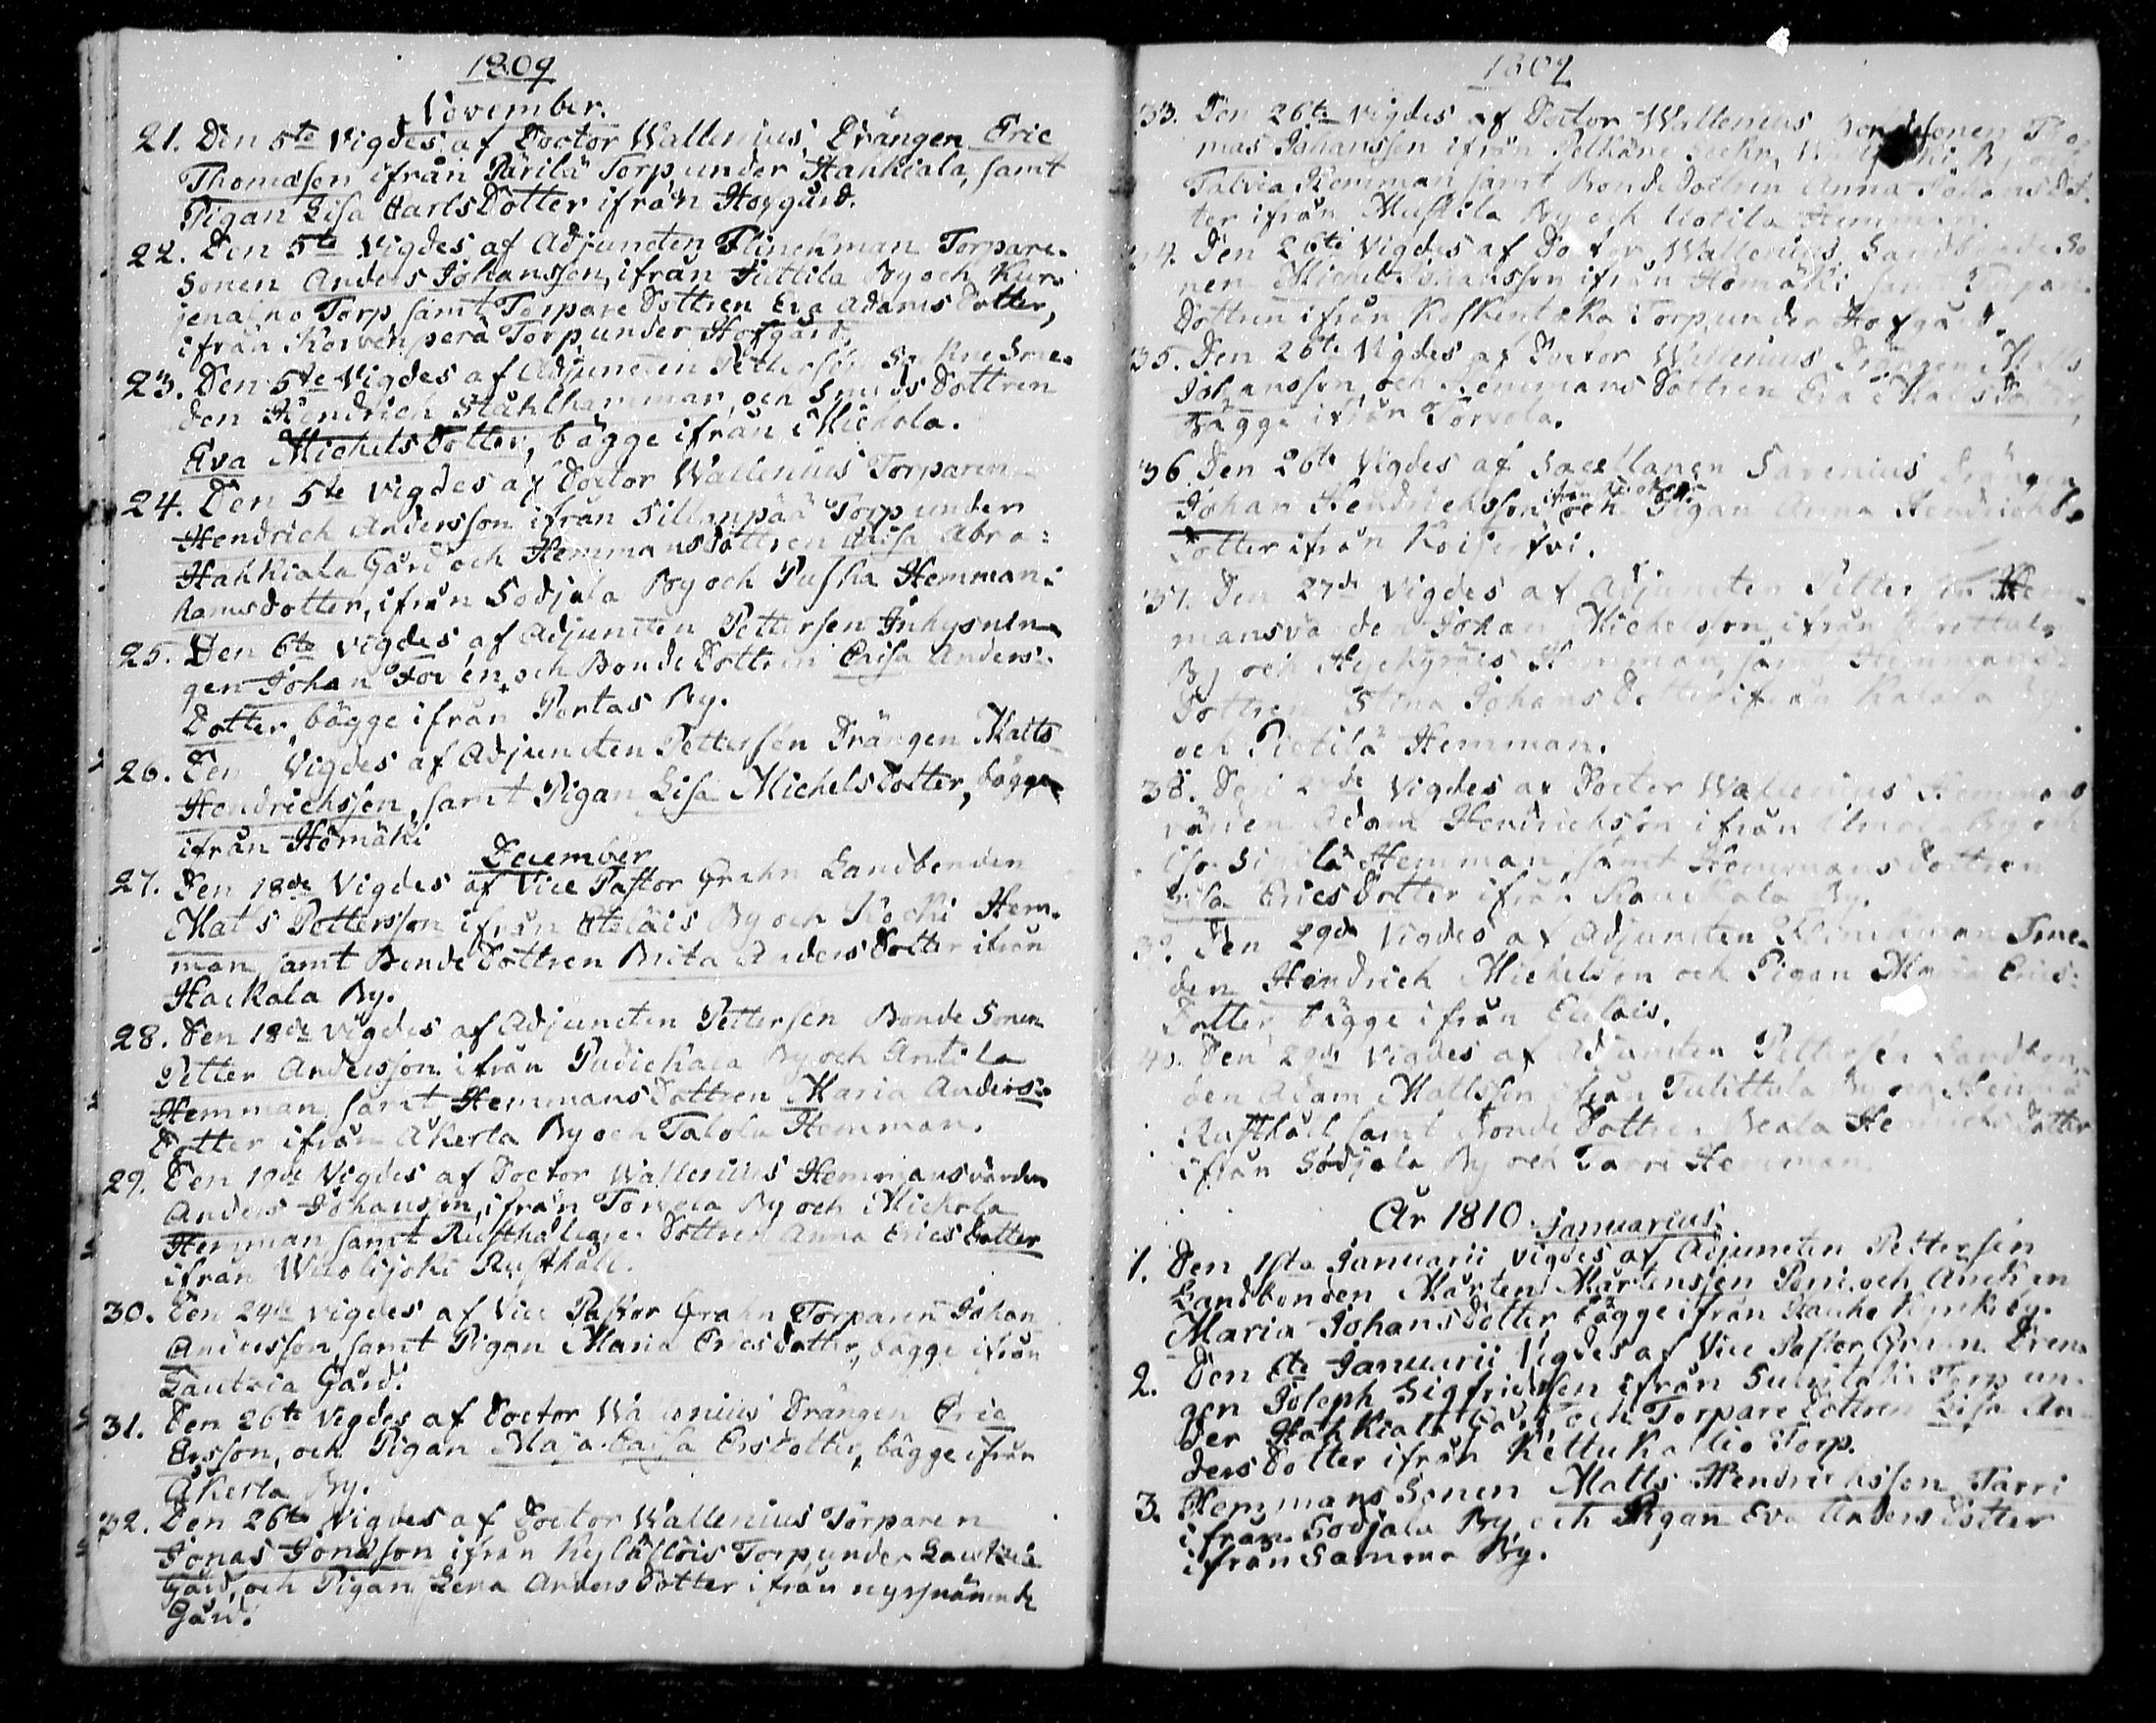 1809
November.
21. Den 5te Vigdes af Doctor Wallenius, Drängen Eric
Thomasson ifrån Pärilä Torp under Hahkiala, samt
Pigan Lisa Carls Dotter ifrån Hofgård.
22. Den 5te Vigdes af Adjuncten Flinckman Torpare
Sonen Anders Johansson, ifrån Tuttila By och Kur-
Torp samt Torpare Dottren Eva Adams Dotter,
ifrån Korvenperä Torp under Hofgård.
23. Den 5te Vigdes af Adjuncten Pettersen Sockne Sme-
den Hendrich Ståhlhammar, och Smeds Dottren
Eva Michels Dotter, bägge ifrån Mickola.
24. Den 5te Vigdes af Doctor Wallenius Torparen
Hendrich Andersson ifrån Sillanpää Torp under
Hahkiala Gård och Hemmans Dottren Caisa Abra-
hamsdotter, ifrån Sodjala By och Puska Hemman.
25. Den 6te Vigdes af Adjuncten Pettersen Inhysnin-
gen Johan och Bonde Dottren Caisa Anders-
Dotter, bägge ifrån Portas By.
26. Den Vigdes af Adjuncten Pettersen Drängen Matts
Hendrichsson, samt Pigan Lisa Michels Dotter, bägge
ifrån Hömäki
December
27. Den 18de Vigdes af Vice Pastor Grahn Landbonden
Mats Pettersson ifrån Eteläis By och Kocki Hem-
man samt Bonde Dottren Brita Anders Dotter ifrån
Hackala By.
28. Den 18de Vigdes af Adjuncten Pettersen Bonde Sonen
Petter Andersson ifrån By och Antila
Hemman, samt Hemmans Dottren Maria Anders-
Dotter ifrån Åkerla By och Talola Hemman.
29. Den 19de Vigdes af Doctor Wallenius Hemmansvärden
Anders Johansson, ifrån Torvola By och Mickola
Hemman samt Rusthållare Dottren Anna Erics Dotter
ifrån Wuolijoki Rusthåll.
30. Den 24de Vigdes af Vice Pastor Grahn Torparen Johan
Andersson, samt Pigan Maria Erics dotter, bägge ifrån
Lautsia Gård.
31. Den 26te Vigdes af Doctor Wallenius Drängen Eric
Ersson, och Pigan Maja Caisa Ersdotter, bägge ifrån
Åkerla By.
32. Den 26te Vigdes af Doctor Wallenius Torparen
Jonas Jonasson ifrån Torp under Lautsia
Gård, och Pigan Lena Anders Dotter ifrån
Gård.
1809
33. Den 26te Vigdes af Doctor Wallenius Bondesonen Tho-
mas Johansson ifrån Pelkäne Sockn, By och
Talvia Hemman samt Bonde Dottren Anna Johans Dot-
ter ifrån Muskila By och Uotila Hemman.
34. Den 26te Vigdes af Doctor Wallenius So-
nen Michel Johansson ifrån Hömäki samt Torpare
Dottren ifrån Torp under Hofgård.
35. Den 26te Vigdes af Doctor Wallenius Drängen Matts
Johansson och Hemmans Dottren Eva Mats Dotter,
bägge ifrån Torvola.
36. Den 26te Vigdes af Sacellanen Savenius Drängen
Johan Hendrichsson och Pigan Anna Hendrichs
Dotter ifrån
37. Den 27de Vigdes af Adjuncten Pettersen Hem-
mansvärden Johan Michelsson ifrån
By och Hemman, samt Hemmans
Dottren Stina Johans Dotter ifrån Katala
och Pietilä Hemman.
38. Den 27de Vigdes af Doctor Wallenius Hemmans
värden Adam Hendrichson ifrån By och
Hemman, samt Hemmans Dottren
Lisa Erics Dotter ifrån By.
39. Den 29de Vigdes af Adjuncten Flinckman Sme-
den Hendrich Michelson och Pigan Maria Erics-
Dotter bägge ifrån Eteläis.
40. Den 29de Vigdes af Adjuncten Pettersen Landbon-
den Adam Mattsson ifrån Tulittula By och
Rusthåll, samt Bonde Dottren Beata Hendrichs Dotter
ifrån Sodjala By och Tarri Hemman.
År 1810. Januarius.
1. Den 1sta Januarii Vigdes af Adjuncten Pettersen
Landbonden Mårten Mårtensson och Änckan
Maria Johans Dotter bägge ifrån
2. Den 6te Januarii Vigdes af Vice Pastor Grahn Drän-
gen Joseph Sigfridsson ifrån Torp un-
der Hahkiala Gård, och Torpare Dottren Lisa An-
ders Dotter ifrån Kettukallio Torp.
3. Hemmans Sonen Matts Hendrichsson Tarri
ifrån Sodjala By, och Pigan Eva Anders Dotter
ifrån Samma By.